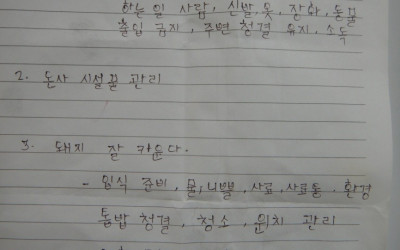 하는 일 사람, 신발, 옷, 장화, 동물
출입 금지, 주변 청결 유지, 소독
2. 돈사 시설물 관리
3. 돼지 잘 키운다.
- 입식 준비, 물, 니쁠, 사료, 사료통, 환경
톱밥 청결, 청소, 위치 관리